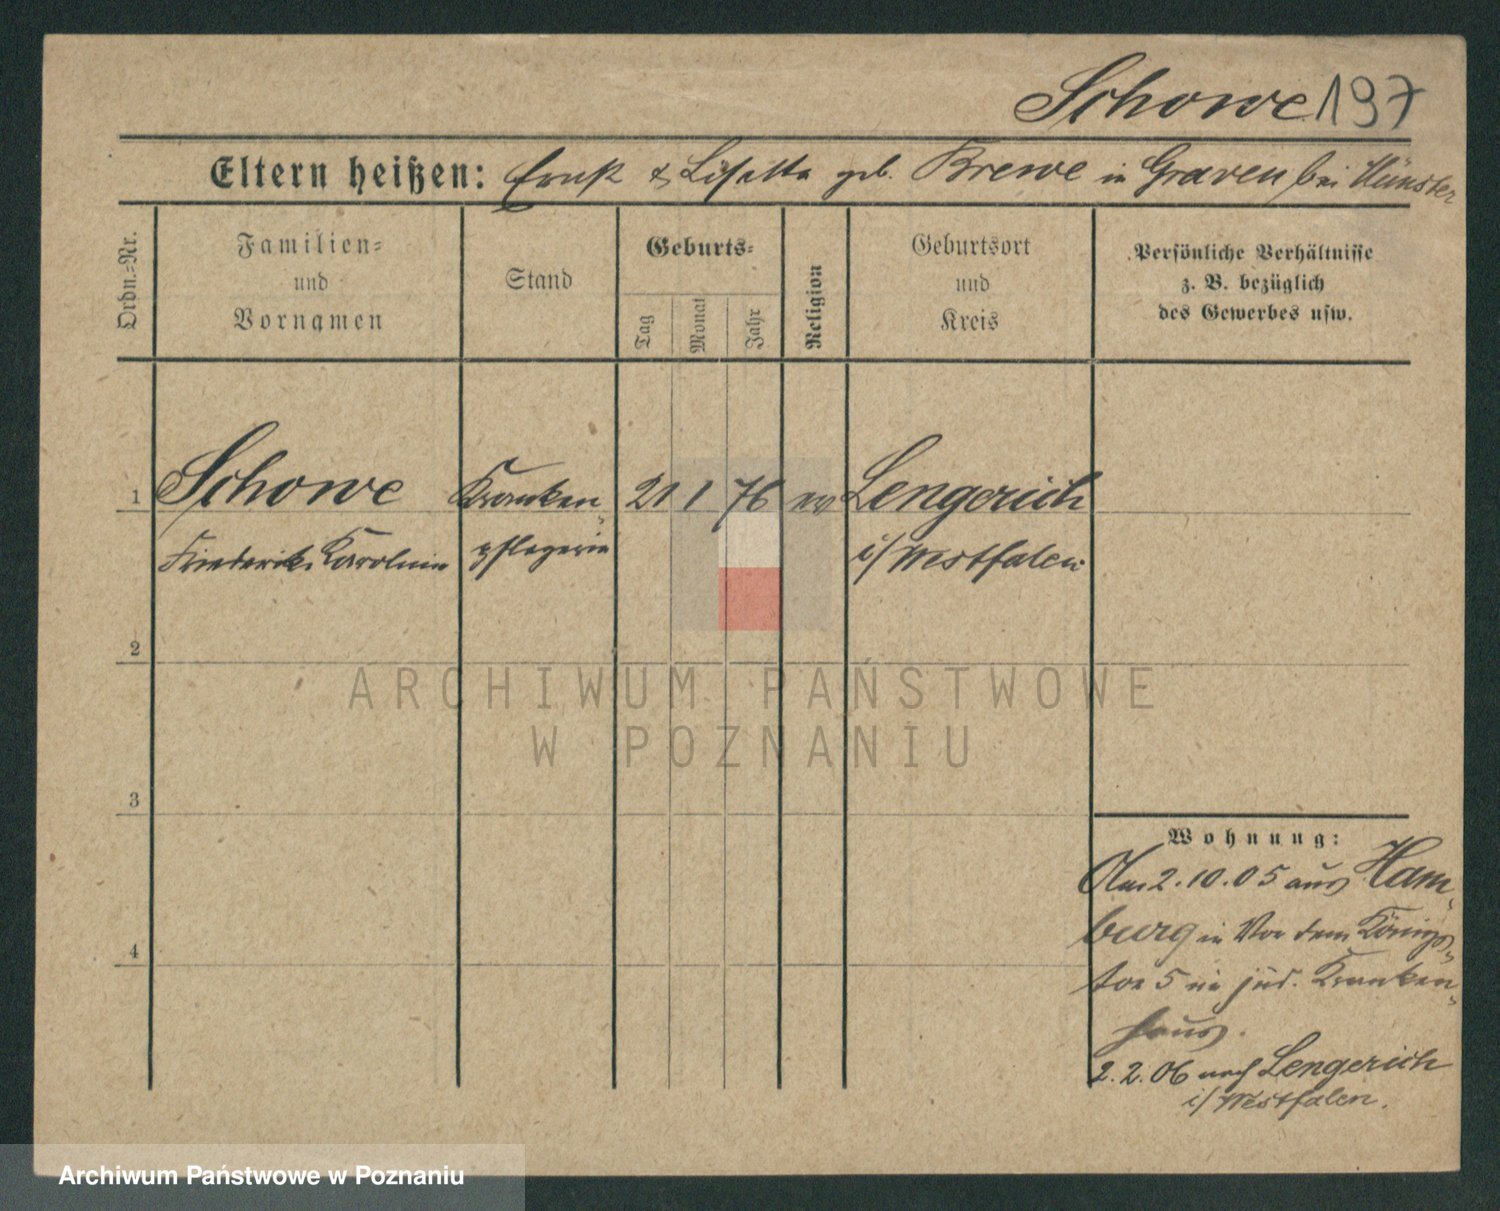 Schowe 197
Eltern heißen: Ernst & Lisette geb. Brewe in Graven bei Münster
Ordn.=Nr.
Familien=
und
Vornamen
Stand
Geburts=
Tag
Monat
Jahr
Religion
Geburtsort
und
Kreis
Persönliche Verhältnisse
z. B. bezüglich
des Gewerbes usw.
1 Schowe Kranken= 21 1 76 ev Lengerich
Friederike Karoline pflegerin i/Westfalen
2
3
4
Wohnung:
Am 2.10.05 aus Ham=
burg in Vor dem Königs=
tor 5 in jüd. Kranken=
haus.
2.2.06 nach Lengerich
i/Westfalen.
ARCHIWUM PAŃSTWOWE
W POZNANIU
Archiwum Państwowe w Poznaniu